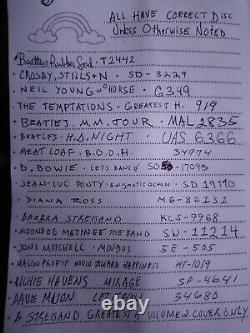 ALL HAVE CORRECT DISC
Unless Otherwise Noted
Beatles Rubber Soul - T2442
CROSBY, STILLS + N - SD - 8229
NEIL YOUNG HORSE - 6349
THE TEMPTATIONS - GREATEST H. 919
BEATLES, M.M. TOUR - MAL 2835
BEATLES H.D. NIGHT UAS 6366
MEAT LOAF - B.O.O.H. 34974
D. BOWIE - LETS DANCE SO 17093
JEAN-LUC PONTY - ENIGMATIC OCEAN - SD 19110
DIANA ROSS M6-861S1
BARBRA STREISAND KCS-9968
MOONDOG MATINEE THE BAND SW-11214
JONI MITCHELL - MINGUS 5E-505
MASON PROFFIT MOVIN TOWARD HAPPINESS HT-1019
RICHIE HAVENS MIRAGE SP-4641
DAVE MASON 34680
B STREISAND GREATEST COVER ONLY